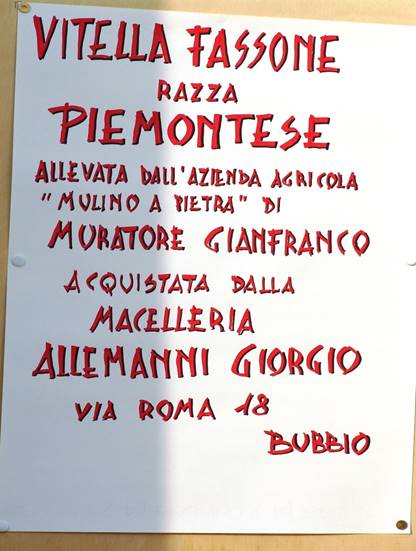 VITELLA FASSONE
RAZZA
PIEMONTESE
ALLEVATA DALL'AZIENDA AGRICOLA
"MULINO A PIETRA" DI
MURATORE GIANFRANCO
ACQUISTATA DALLA
MACELLERIA
ALLEMANNI GIORGIO
VIA ROMA 18
BUBBIO